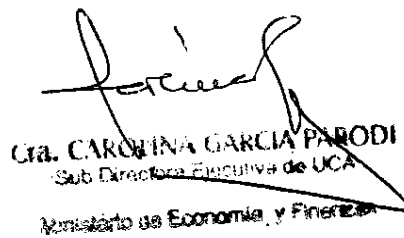 Cra. CAROLINA GARCIA PARODI
Sub Directora Ejecutiva de UCA
Ministerio de Economía y Finanzas